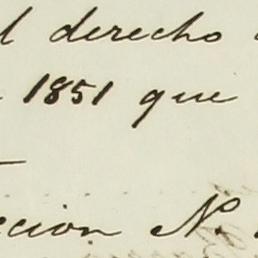 l derecho
1851 que
ccion N.